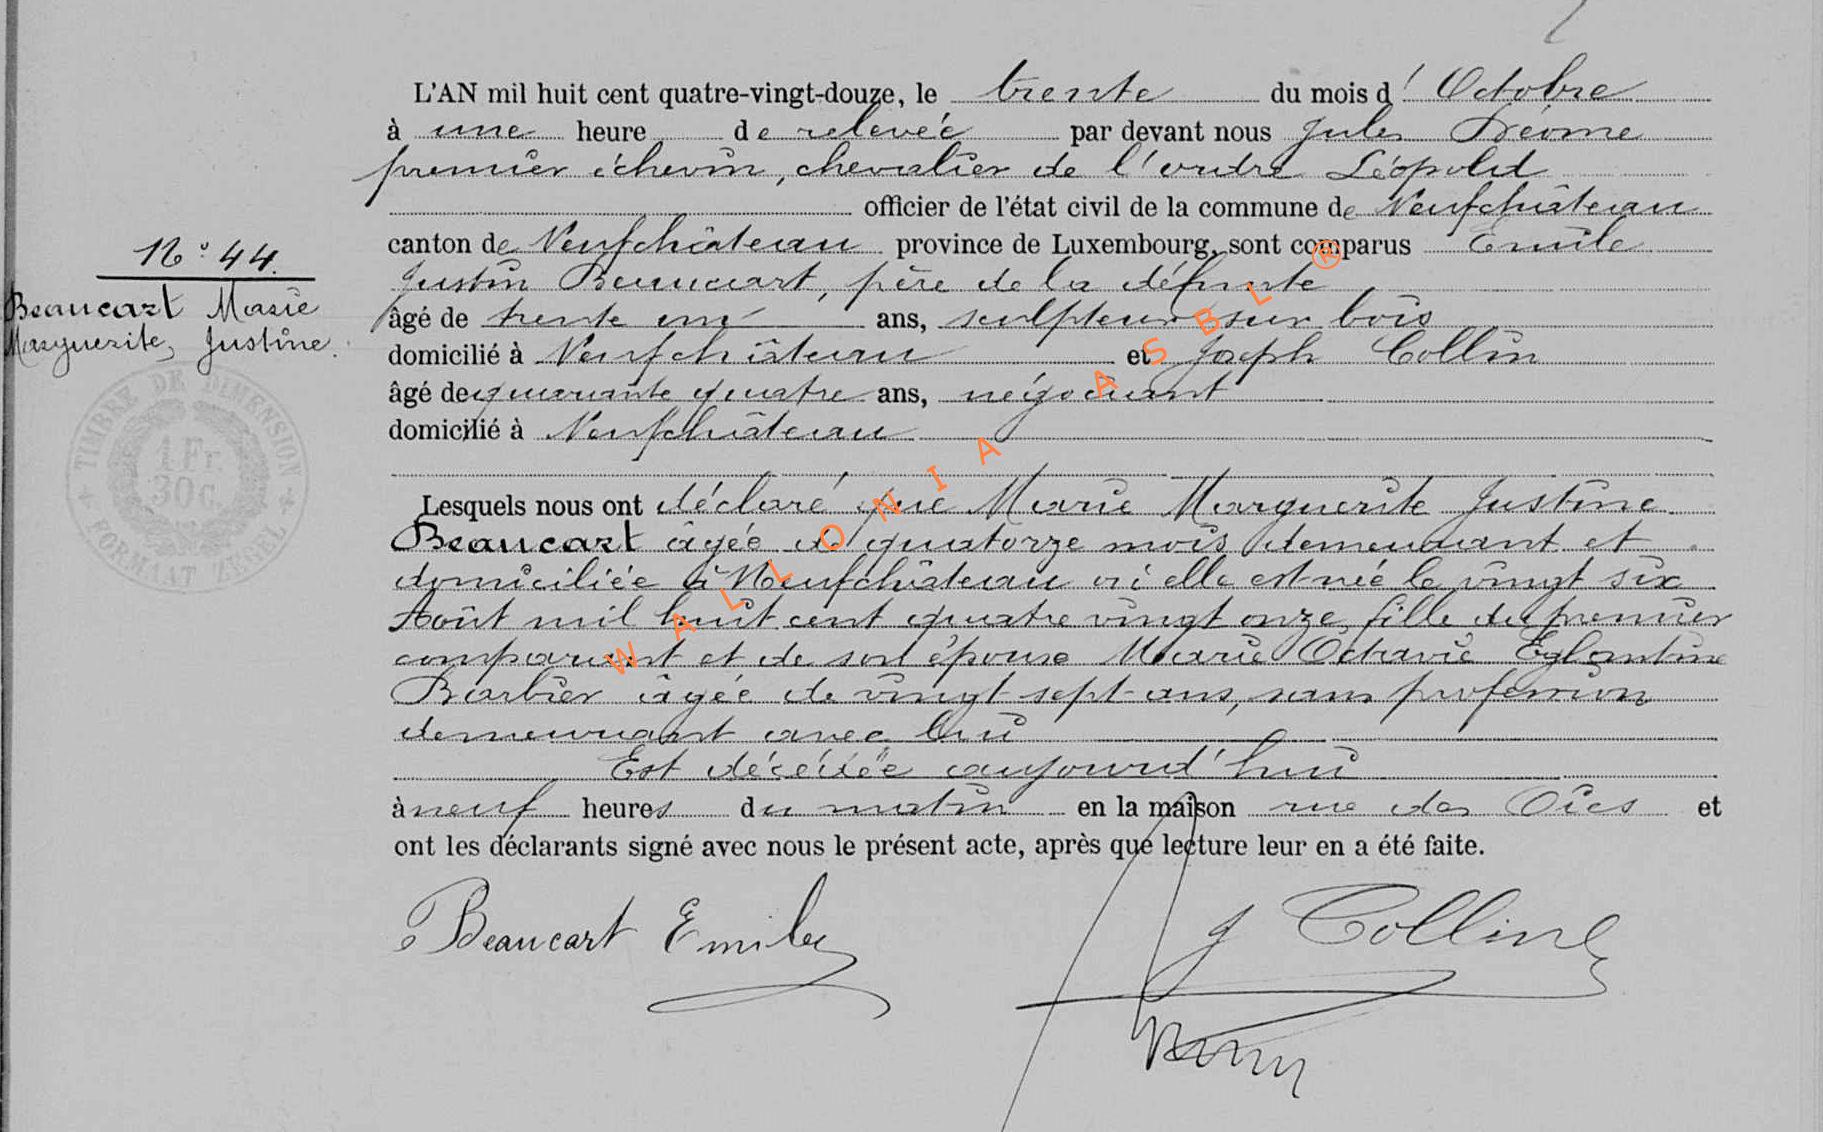 L'AN mil huit cent quatre-vingt-douze, le trente du mois d' Octobre
à une heure de relevée par devant nous Jules Déome
premier échevin, chevalier de l'ordre Léopold
officier de l'état civil de la commune de Neufchâteau
canton de Neufchâteau province de Luxembourg, sont comparus Emile
Justin Beaucart, père de la défunte
âgé de trente un ans, sculpteur sur bois
domicilié à Neufchâteau et Joseph Collin
âgé de quarante quatre ans, négociant
domicilié à Neufchâteau
N° 44.
Beaucart Marie
Marguerite, Justine.
TIMBRE DE DIMENSION
1 Fr.
30 c.
FORMAAT ZEGEL
Lesquels nous ont déclaré que Marie Marguerite Justine
Beaucart âgée de quatorze mois demeurant et
domiciliée à Neufchâteau où elle est née le vingt six
Août mil huit cent quatre vingt onze, fille du premier
comparant et de son épouse Marie Octavie Eglantine
Barbier âgée de vingt-sept-ans, sans profession
demeurant avec lui
Est décédée aujourd'hui
à neuf heures du matin en la maison rue des Oies et
ont les déclarants signé avec nous le présent acte, après que lecture leur en a été faite.
Beaucart Emile
J Collin
WALLONIA ASBL ®